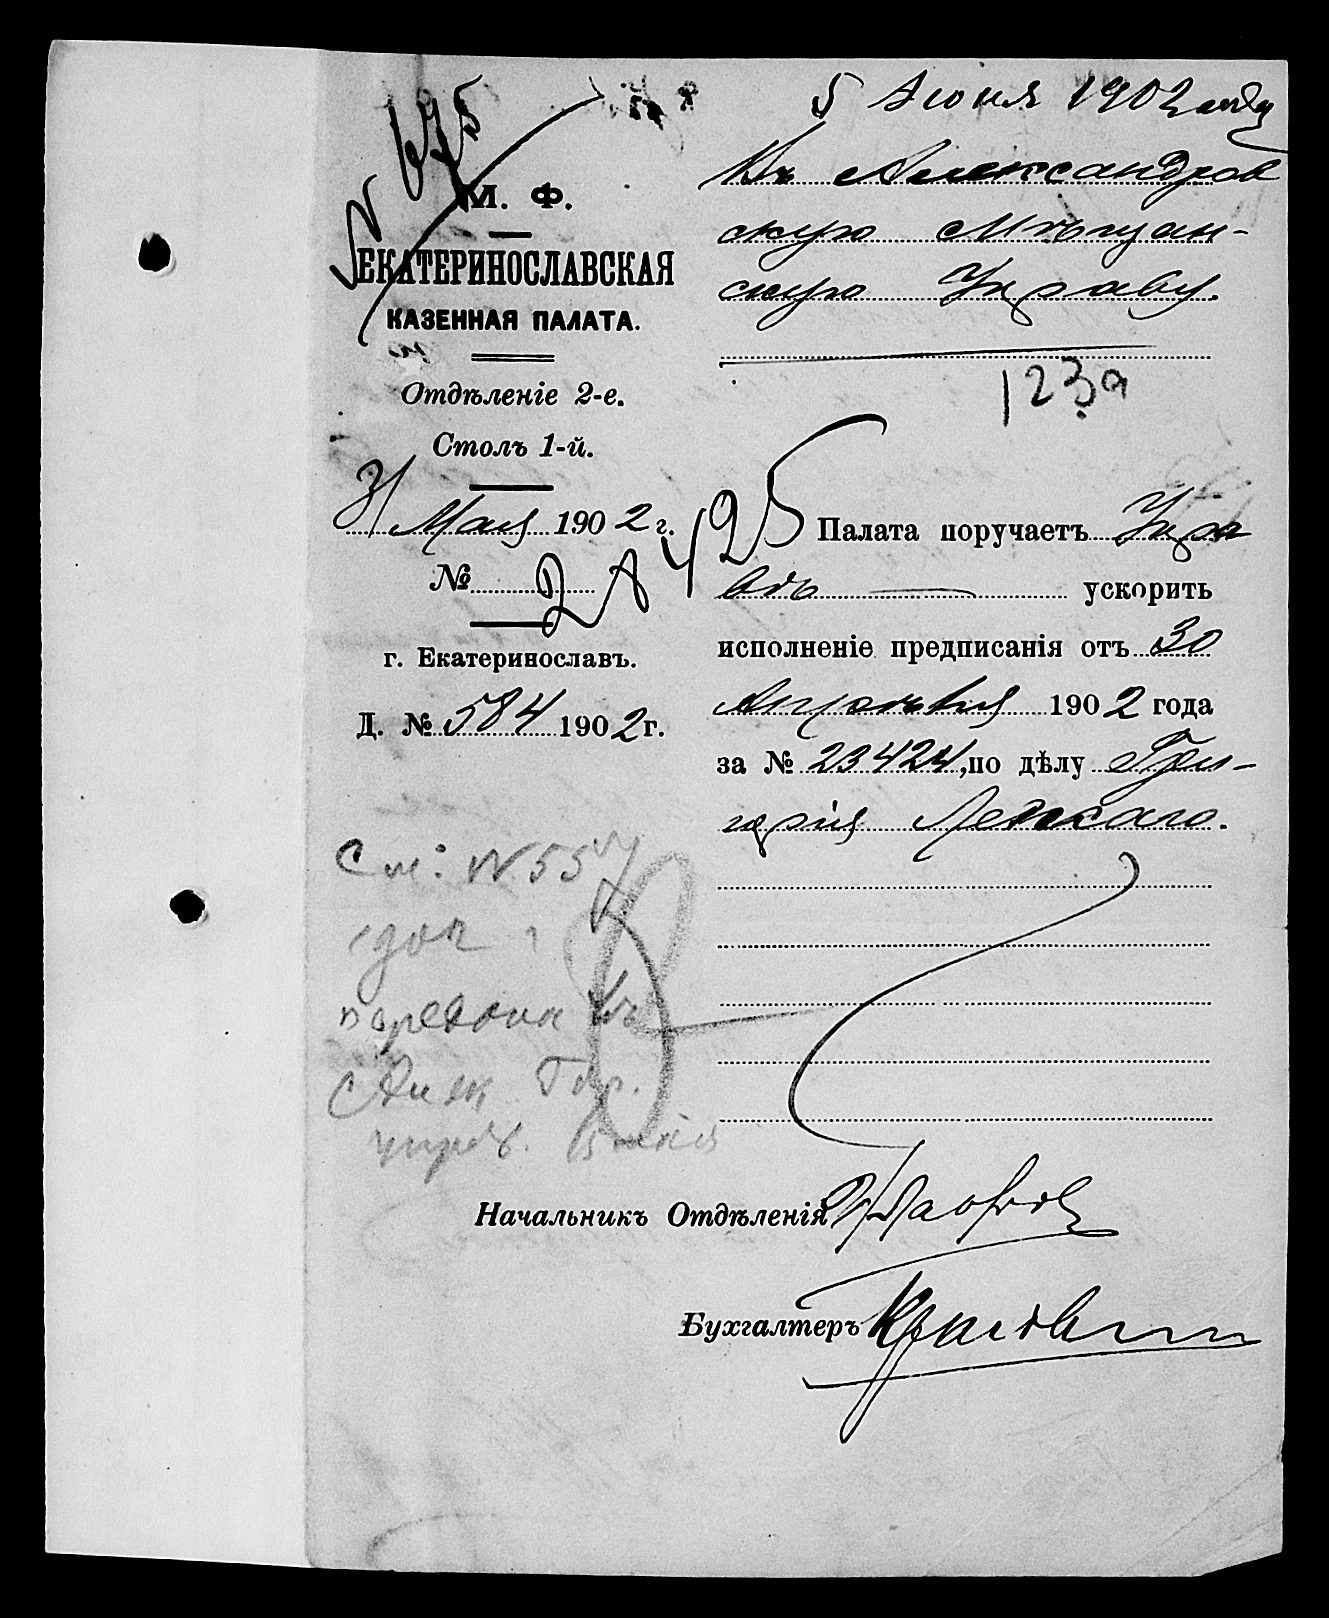 № 675
5 Июня 1902 году
М. Ф.
ЕКАТЕРИНОСЛАВСКАЯ
КАЗЕННАЯ ПАЛАТА.
Отдѣленіе 2-е.
Столъ 1-й.
31 Мая 1902 г.
№ 28425
г. Екатеринославъ.
Д. № 584 1902 г.
Въ Александров
скую Мѣщан-
скую Управу.
123а
Палата поручаетъ Упра
вѣ — ускорить
исполненіе предписанія отъ 30
Апрѣля 1902 года
за № 23424, по дѣлу Гри-
горія Ленскаго.
См: № 557
передана въ
Гор.
Начальникъ Отдѣленія
Бухгалтеръ